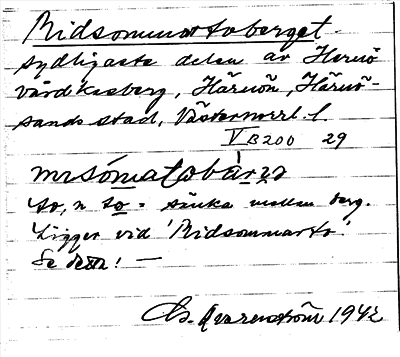 Midsommartoberget.
sydligaste delen av Hernö
vårdkasberg, Härnön, Härnö-
sands stad, Västernorrl. l.
V B200 29
to, n to = sänka mellan berg.
Ligger vid 'Midsommarto'.
Se den! —
Qvarnström 1942